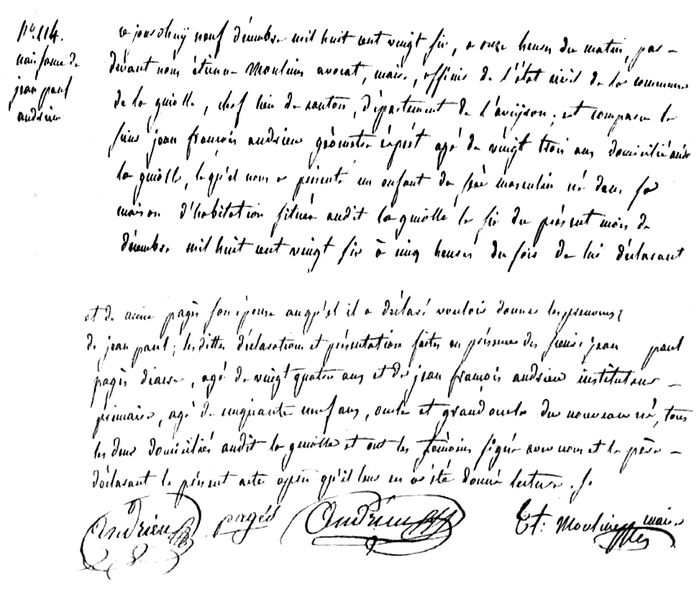 N.° 114.
naissance de
jean paul
andrieu
ce jourd'huy neuf décembre mil huit cent vingt six, a onze heures du matin, par-
devant nous étienne Moulins avocat, maire, officier de l'état civil de la commune
de la guiolle, chef lieu de canton, département de l'aveyron; est comparu le
sieur jean françois andrieu géometre expert agé de vingt trois ans domicilié audit
la guiolle, lequel nous a présenté un enfant du sexe masculin né dans sa
maison d'habitation située audit la guiolle le six du présent mois de
décembre mil huit cent vingt six à cinq heures du soir de lui déclarant
et de anne pagès son épouse auquel il a déclaré vouloir donner les prenoms
de jean paul; lesdittes déclaration et présentation faites en présence des sieurs jean paul
pagès diacre, agé de vingt quatre ans et de jean françois andrieu instituteur
primaire, agé de cinquante neuf ans, oncle et grand oncle du nouveau né, tous
les deux domiciliés audit la guiolle et ont les témoins signé avec nous et le père
déclarant le présent acte après qu'il leur en a été donné lecture. /.
Andrieu pagès Andrieu Et. Moulins maire